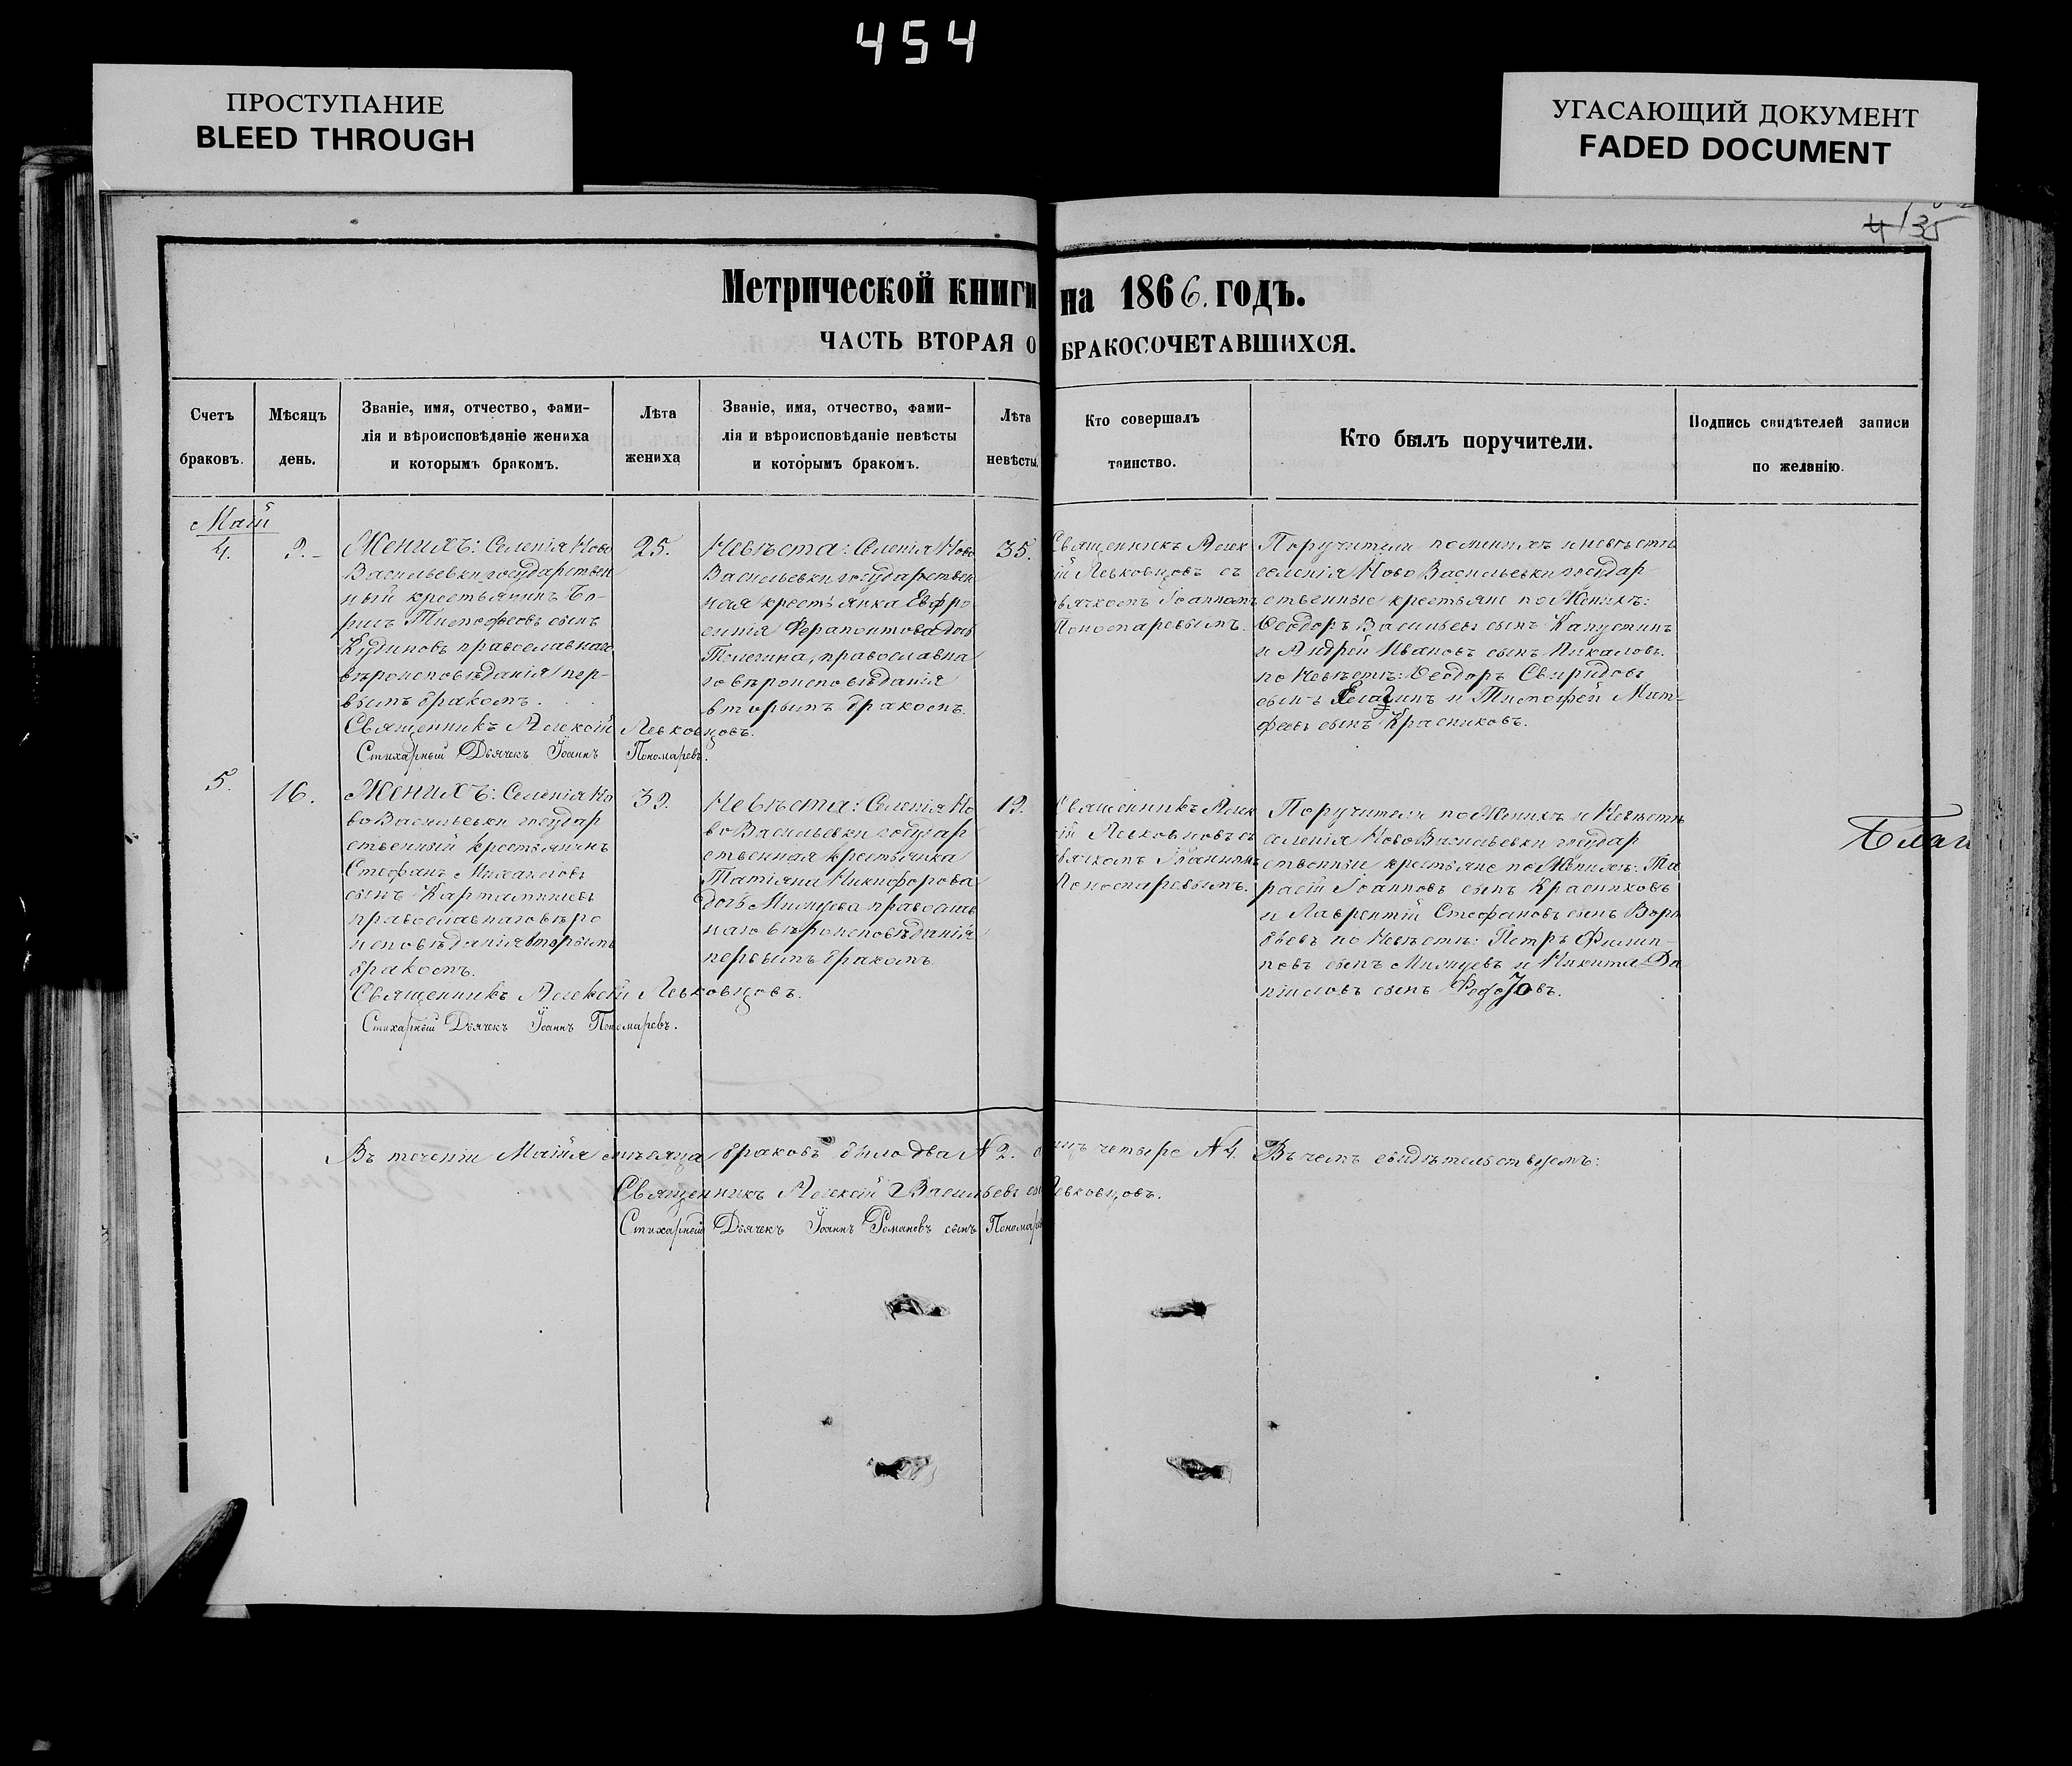 454
ПРОСТУПАНИЕ
BLEED THROUGH
УГАСАЮЩИЙ ДОКУМЕНТ
FADED DOCUMENT
4 135
Метрической книги на 1866. годъ.
ЧАСТЬ ВТОРАЯ О БРАКОСОЧЕТАВШИХСЯ.
Счетъ
браковъ.
Мѣсяцъ
день.
Званіе, имя, отчество, фами-
лія и вѣроисповѣданіе жениха
и которымъ бракомъ.
Лѣта
жениха
Званіе, имя, отчество, фами-
лія и вѣроисповѣданіе невѣсты
и которымъ бракомъ.
Лѣта
невѣсты.
Кто совершалъ
таинство.
Кто былъ поручители.
Подпись свидѣтелей записи
по желанію.
Маій
4.
9.-
Женихъ: Селенія Ново
Васильевки государствен
ный крестьянинъ Бо-
рисъ Тимофеевъ сынъ
Кудиновъ православнаго
вѣроисповѣданія пер-
вымъ бракомъ.
25.
Невѣста: Селенія Ново
Васильевки государствен
ная крестьянка Евфро
синія Ферапонтова дочь
православна
го вѣроисповѣданія
вторымъ бракомъ.
35.
Священникъ Алек
ій Левковцовъ съ
дьячкомъ Іоанномъ
Пономаревымъ.
Поручители по женихѣ и невѣстѣ
селенія Ново Васильевки государ-
ственные крестьяне по Женихѣ:
Ѳеодоръ Васильевъ сынъ Капустинъ
и Андрей Ивановъ сынъ Пикаловъ.
по Невѣстѣ: Ѳеодоръ Свиридовъ
сынъ Елагинъ и Тимофей Мат-
феевъ сынъ Красниковъ.
Священникъ Алексій Левковцовъ.
Стихарный Дьячекъ Іоаннъ Пономаревъ.
5.
16.
Женихъ: Селенія Но
воВасильевки государ
ственный крестьянинъ
Стефанъ Михаиловъ
сынъ Картамышевъ
православнаго вѣро
исповѣданія вторымъ
бракомъ.
39.
Невѣста: Селенія Но
воВасильевки государ
ственная крестьянка
Татіана Никифорова
дочь православ
наго вѣроисповѣданія
первымъ бракомъ.
19.
Священникъ Алек
ій Левковцовъ съ
дьячкомъ Іоанномъ
Пономаревымъ.
Поручители по Женихѣ и Невѣстѣ
селенія НовоВасильевки государ
ственные крестьяне по Женихѣ: Та
расій Іоанновъ сынъ Красниковъ
и Лаврентій Стефановъ сынъ Воро
бьевъ по Невѣстѣ: Петръ Филип-
повъ сынъ и Никита Да
ніиловъ сынъ
Благ
Священникъ Алексій Левковцовъ.
Стихарный Дьячекъ Іоаннъ Пономаревъ.
Въ теченіи Маійя мѣсяца браковъ было два №2. четыре №4. Въ чемъ свидѣтельствуемъ:
Священникъ Алексій Васильевъ сы Левковцовъ.
Стихарный Дьячекъ Іоаннъ Романовъ сынъ Пономаре